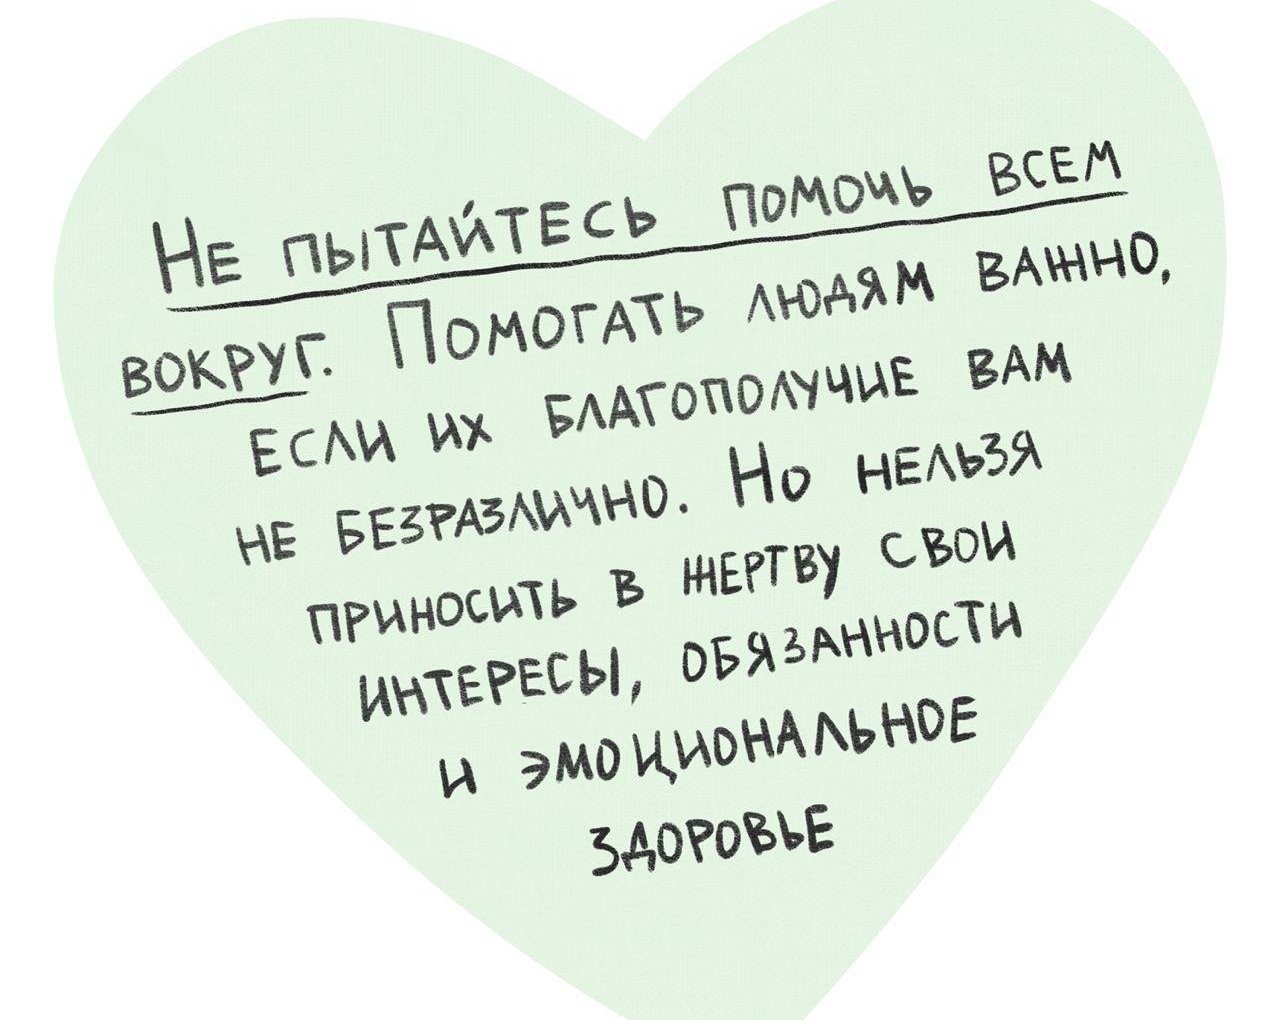 Не пытайтесь помочь всем
вокруг. Помогать людям важно,
если их благополучие вам
не безразлично. Но нельзя
приносить в жертву свои
интересы, обязанности
и эмоциональное
здоровье